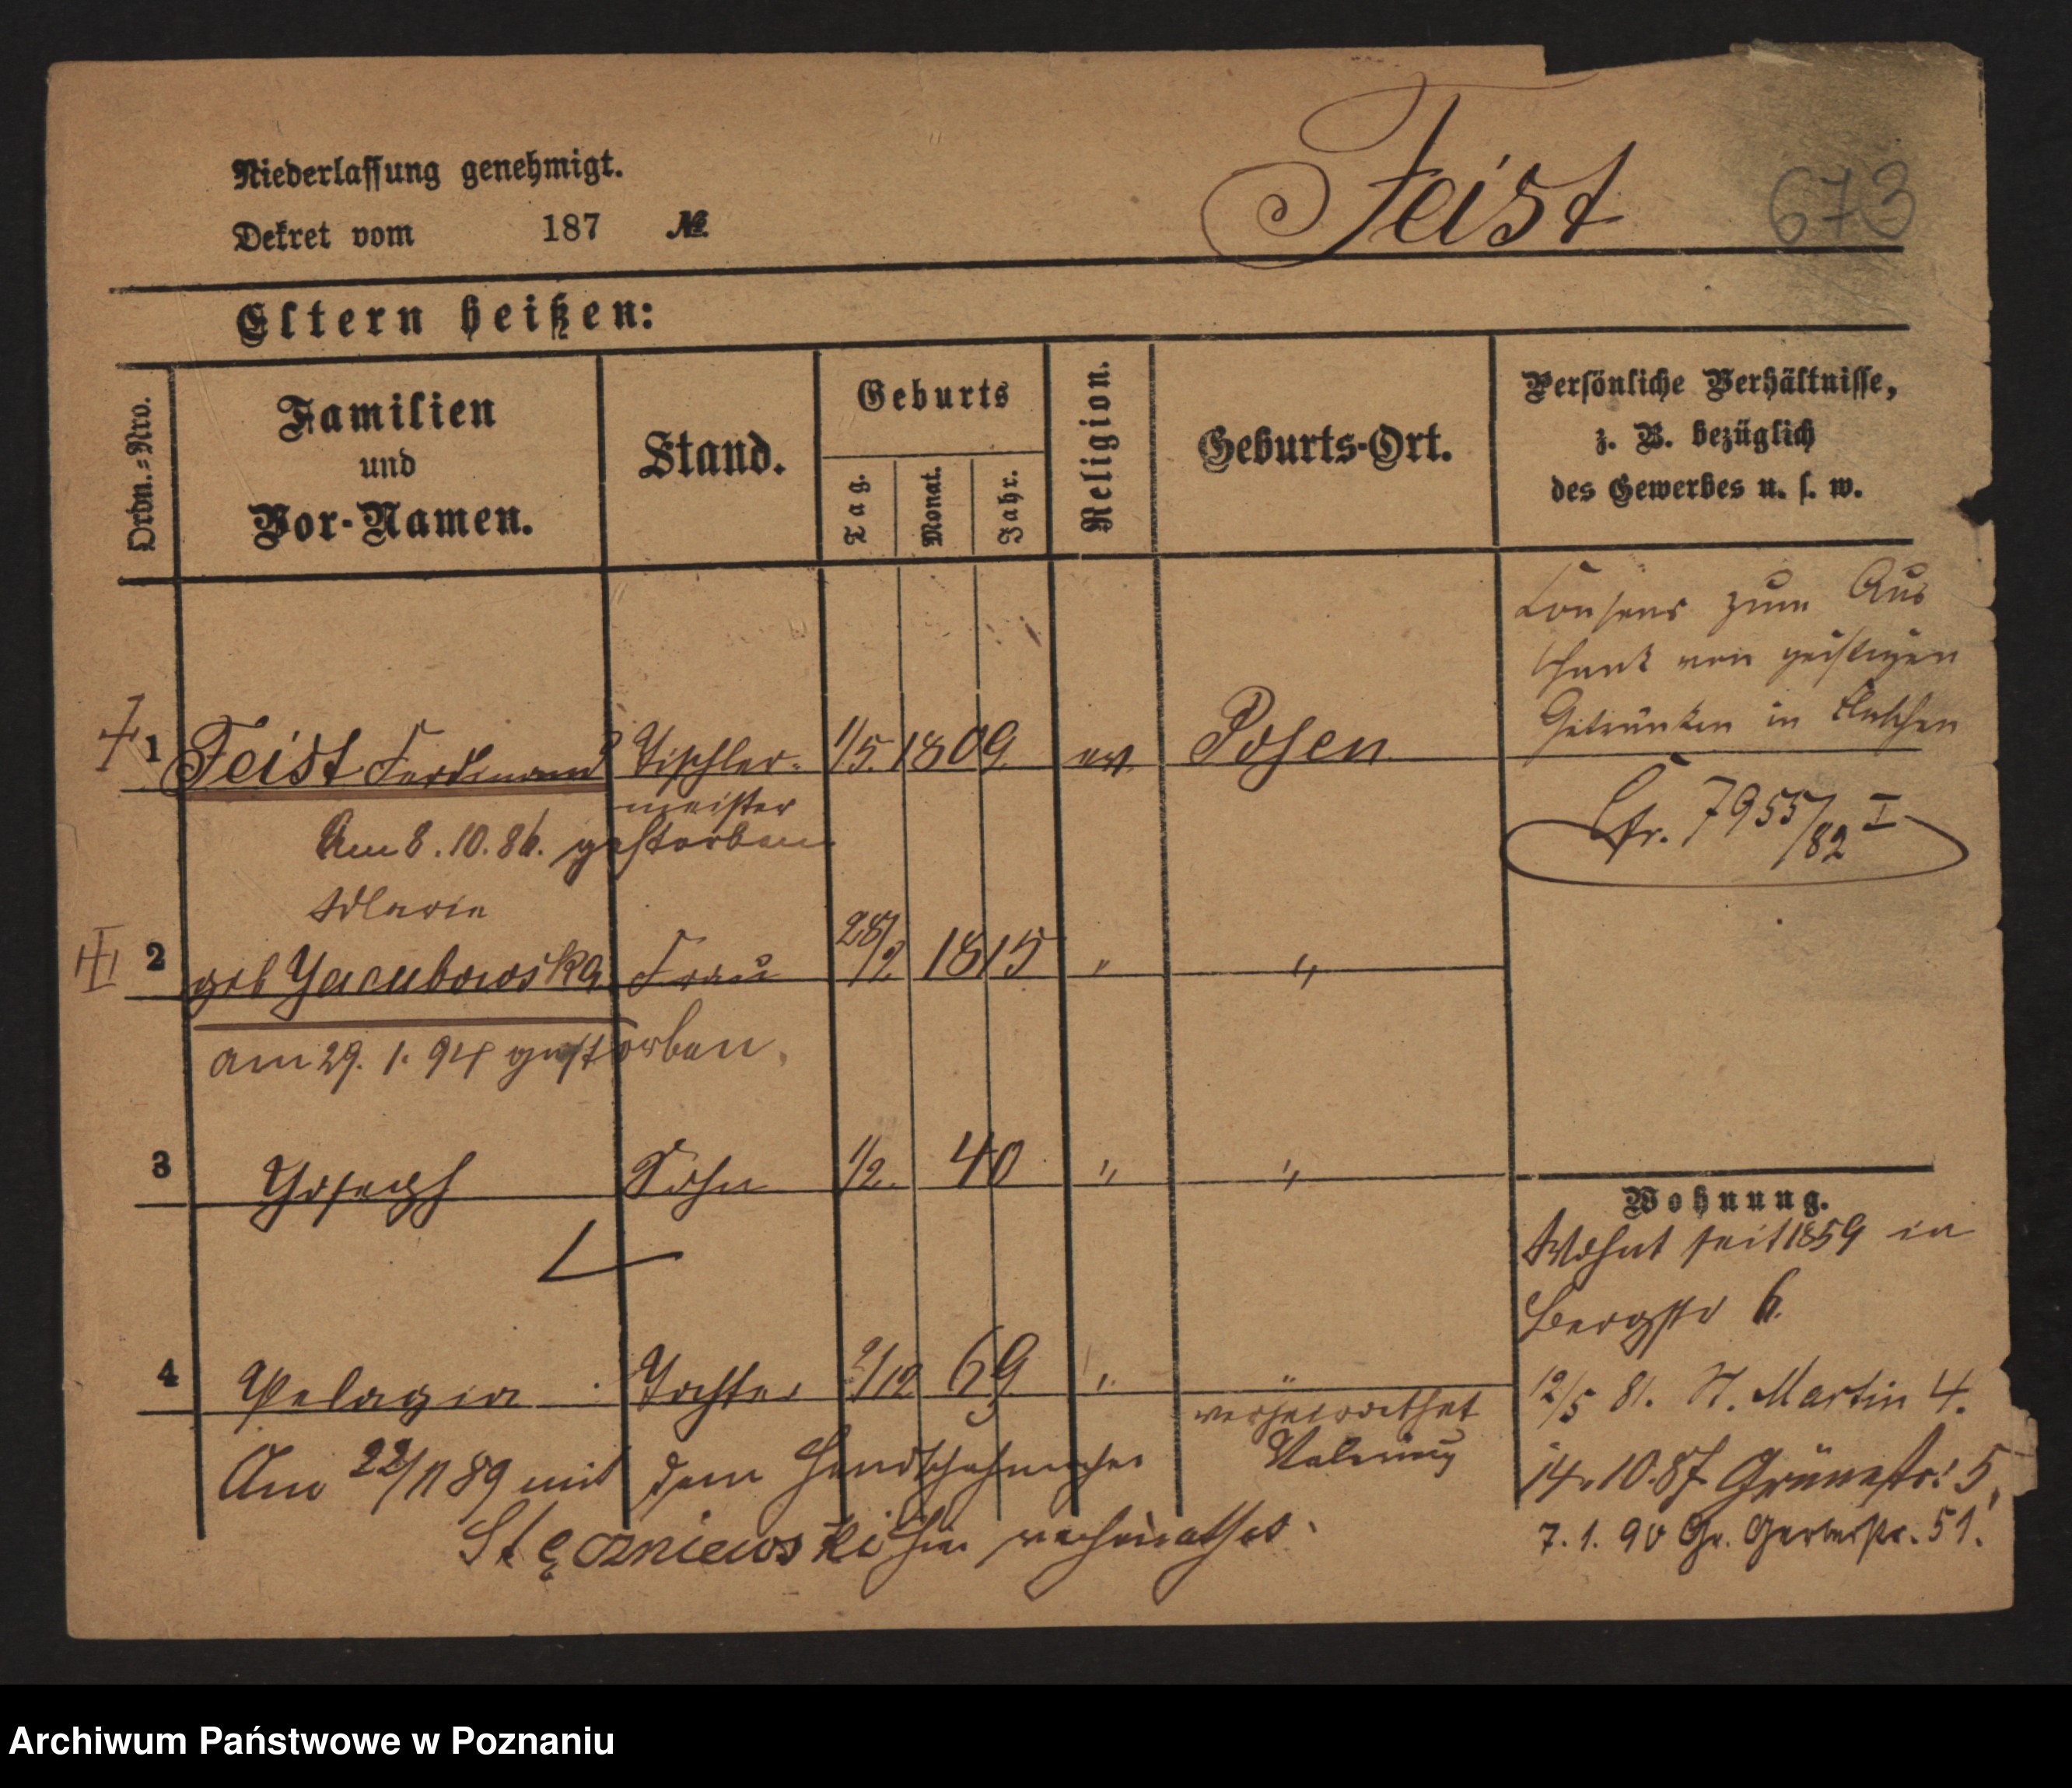 Niederlassung genehmigt.
Dekret vom 187 №
Feist
673
Eltern heißen:
Ordn.-Nro.
Familien
und
Vor-Namen.
Stand.
Geburts
Tag.
Monat.
Jahr.
Religion.
Geburts-Ort.
Persönliche Verhältnisse,
z. B. bezüglich
des Gewerbes u. s. w.
Consens zum Aus
schank von geistigen
Getränken in Flaschen
Cfr. 7955/82 I
1 Feist Ferdinand Tischler- 1/5. 1809. ev. Posen
meister
Am 8.10.86. gestorben
Maria
2 geb Jacubowska Frau 28/2 1815 " "
am 29. 1. 94 gestorben.
3 Joseph Sohn 1/2. 40 " "
4 Pelagia Tochter /12 69 " "
verheirathet
Am 22/11 89 mit dem Handschuhmacher
Stęczniewski hier verheirathet.
Wohnung.
Wohnt seit 1859 in
Bergstr 6.
12/5 81. St. Martin 4.
14.10.87 Grünestr. 5.
7.1.90 Gr. Gerberstr. 51.
Archiwum Państwowe w Poznaniu